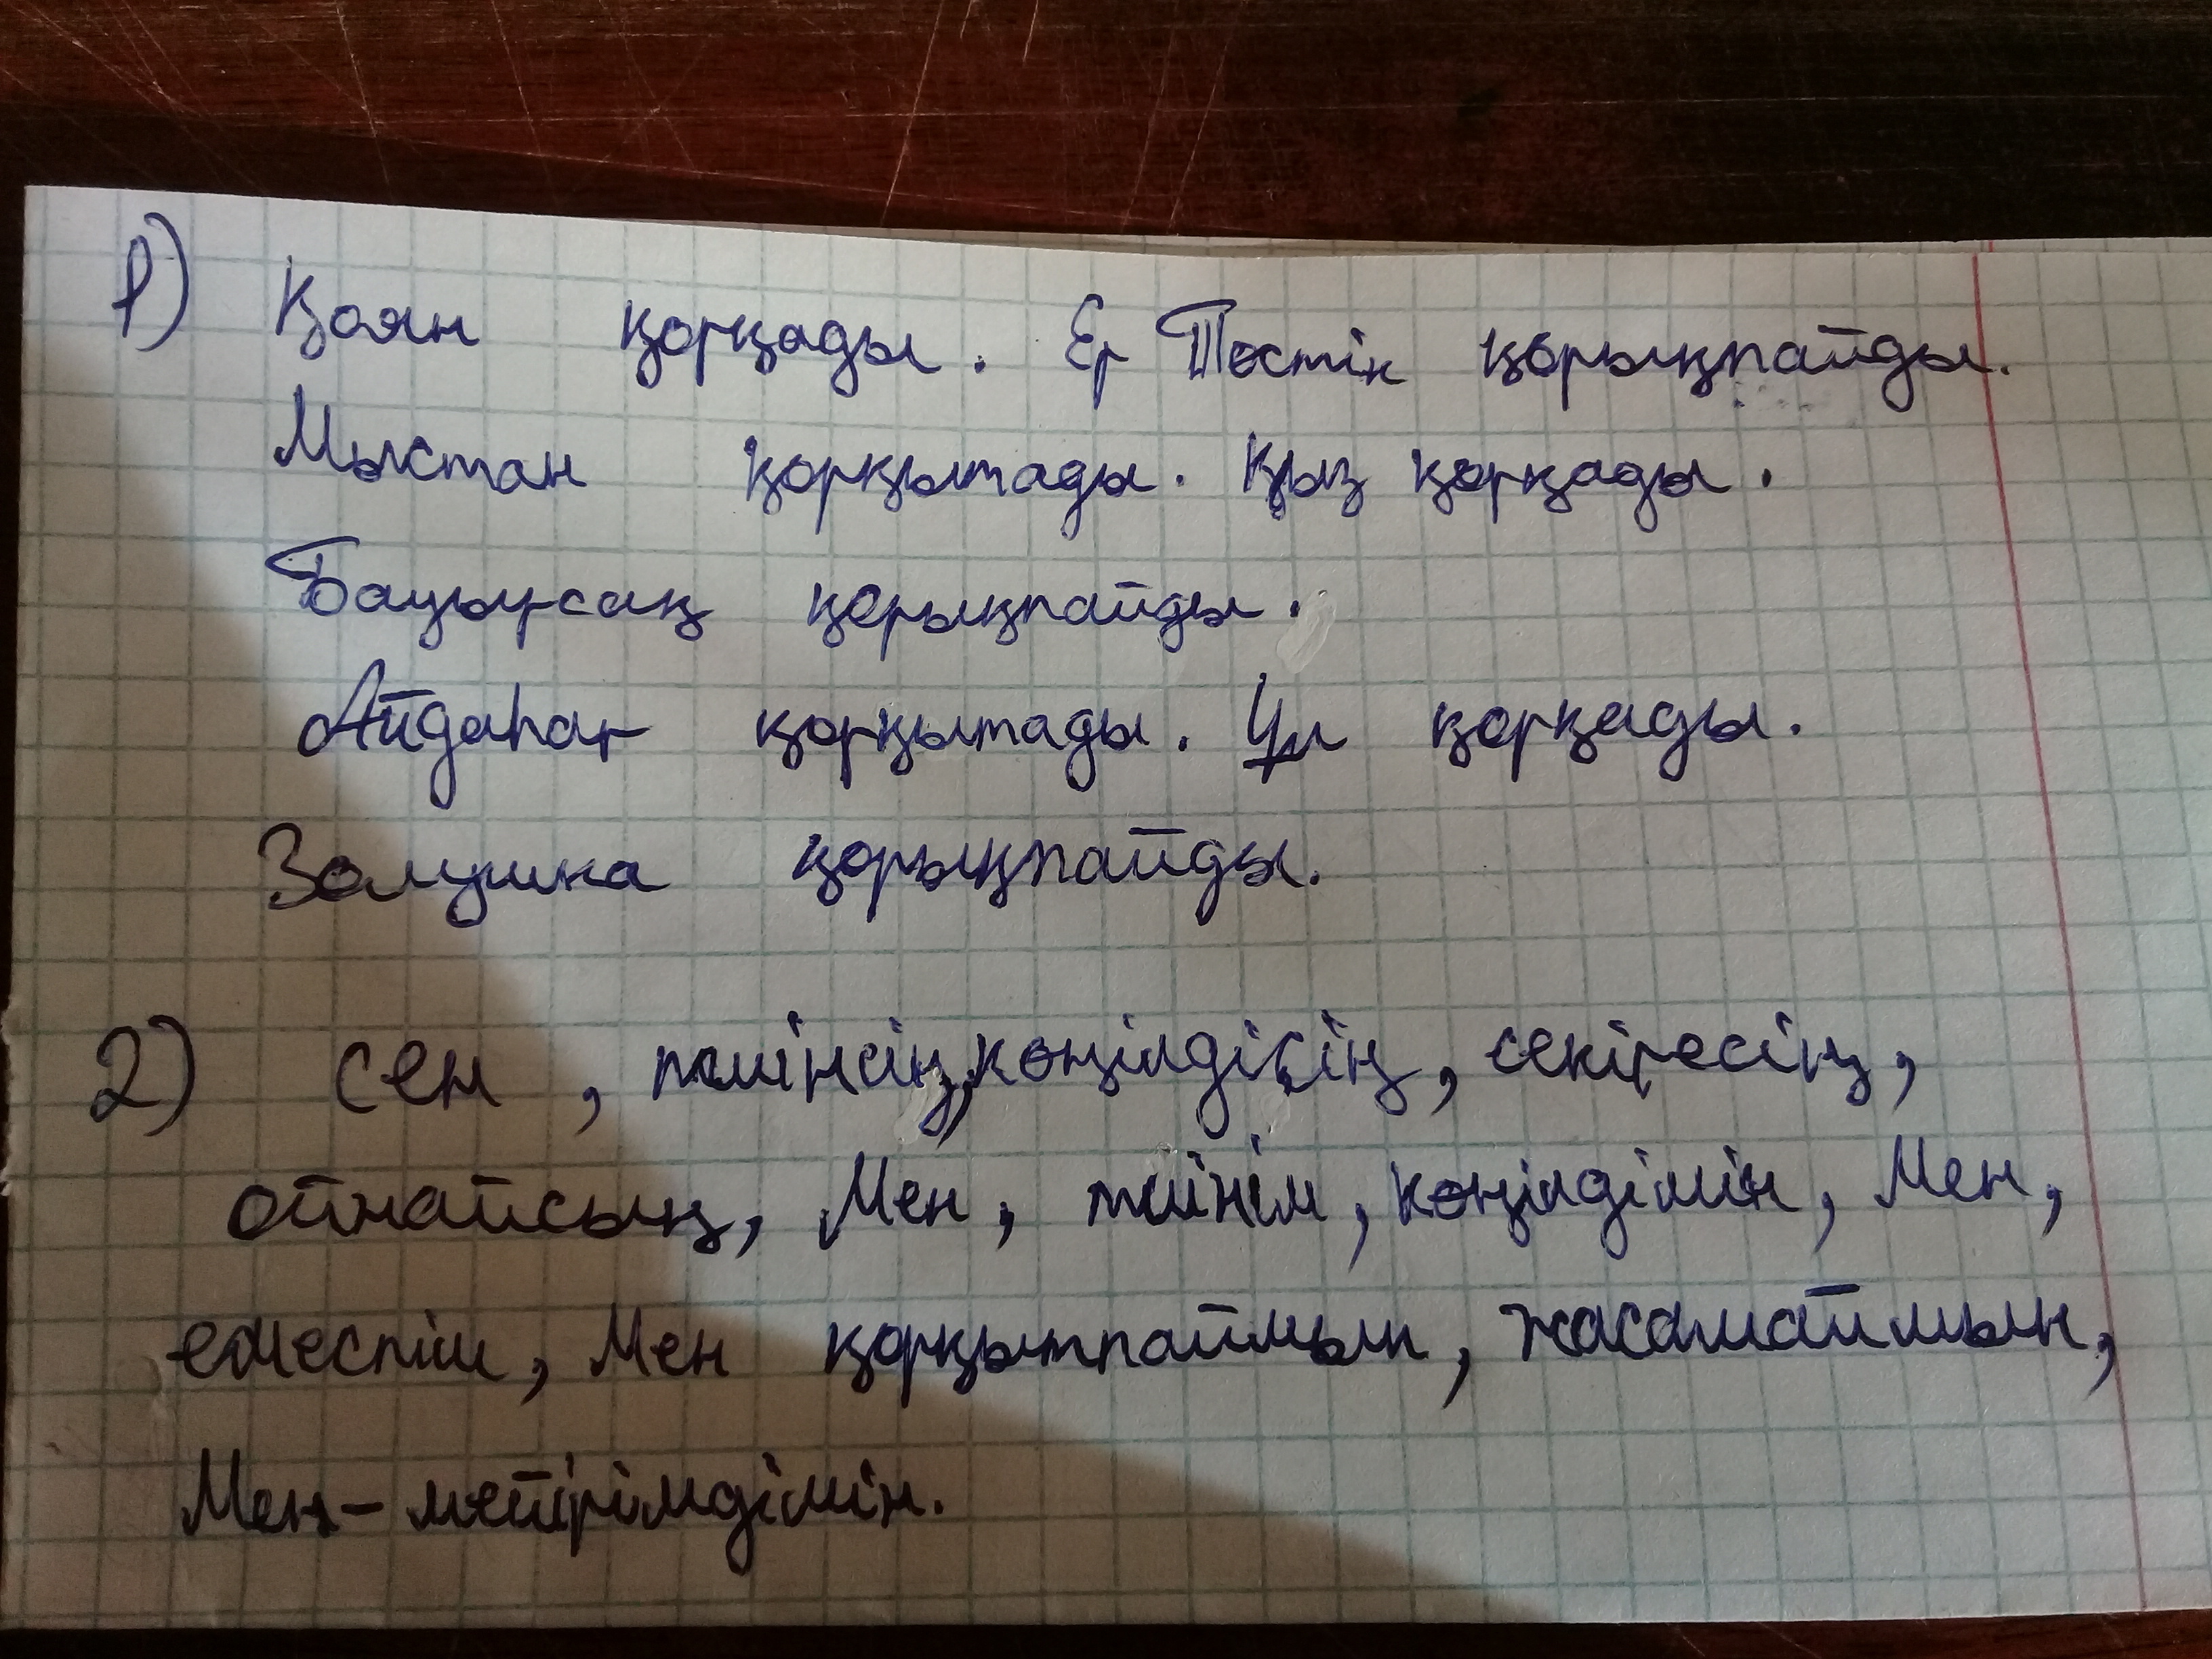 1) Қоян қорқады. Ер Төстік қорықпайды.
Мыстан қорқытады. Қыз қорқады.
Бауырсақ қорықпайды.
Айдаһар қорқытады. Ұл қорқады.
Золушка қорықпайды.
2) сен, тиінсің, көңілдісің, секіресің,
ойнайсың, Мен, тиінім, көңілдімін, Мен,
емеспім, Мен қорқытпаймын, жасамаймын,
Мен - мейірімдімін.